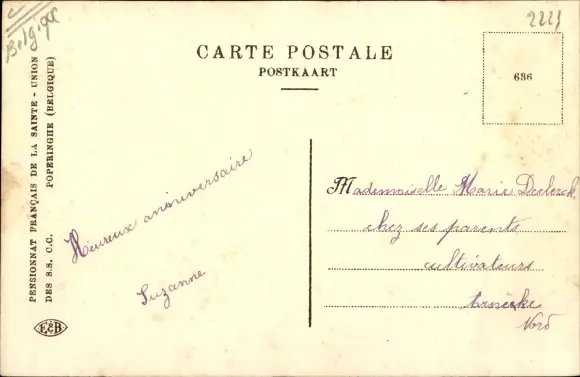 Belgique
2221
CARTE POSTALE
POSTKAART
636
PENSIONNAT FRANÇAIS DE LA SAINTE - UNION
DES S.S. C.C. POPERINGHE (BELGIQUE)
E&B
Heureux anniversaire
Suzanne
Mademoiselle Marie Declerck
chez ses parents
cultivateurs
Arnèke
Nord